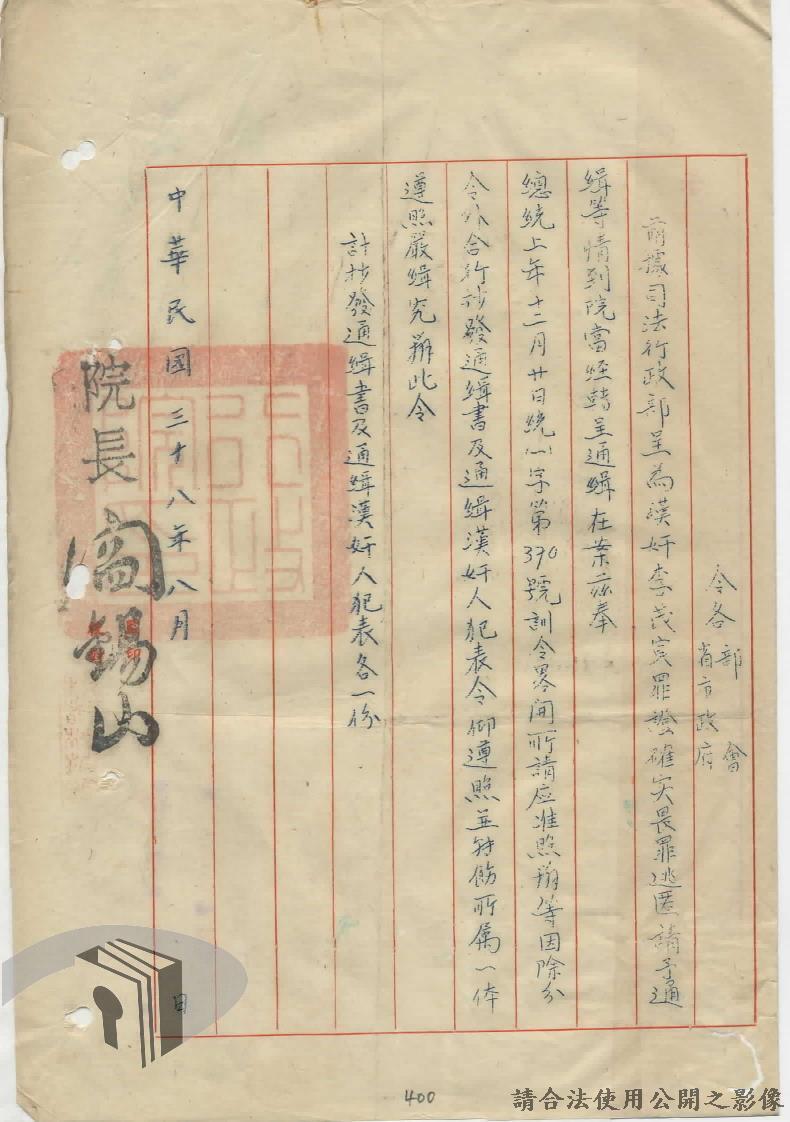 令各部會
省市政府
前據司法行政部呈為漢奸李茂寅罪證確实畏罪逃匿請予通
緝等情到院當經轉呈通緝在案茲奉
總統上年十二月廿日統(一)字第390號訓令畧開所請应准照辦等因除分
令外合行抄發通緝書及通緝漢奸人犯表令仰遵照並转飭所属一体
遵照嚴緝究辦此令
計抄發通緝書及通緝漢奸人犯表各一份
中華民國三十八年八月 日
院長閻錫山
400
請合法使用公開之影像